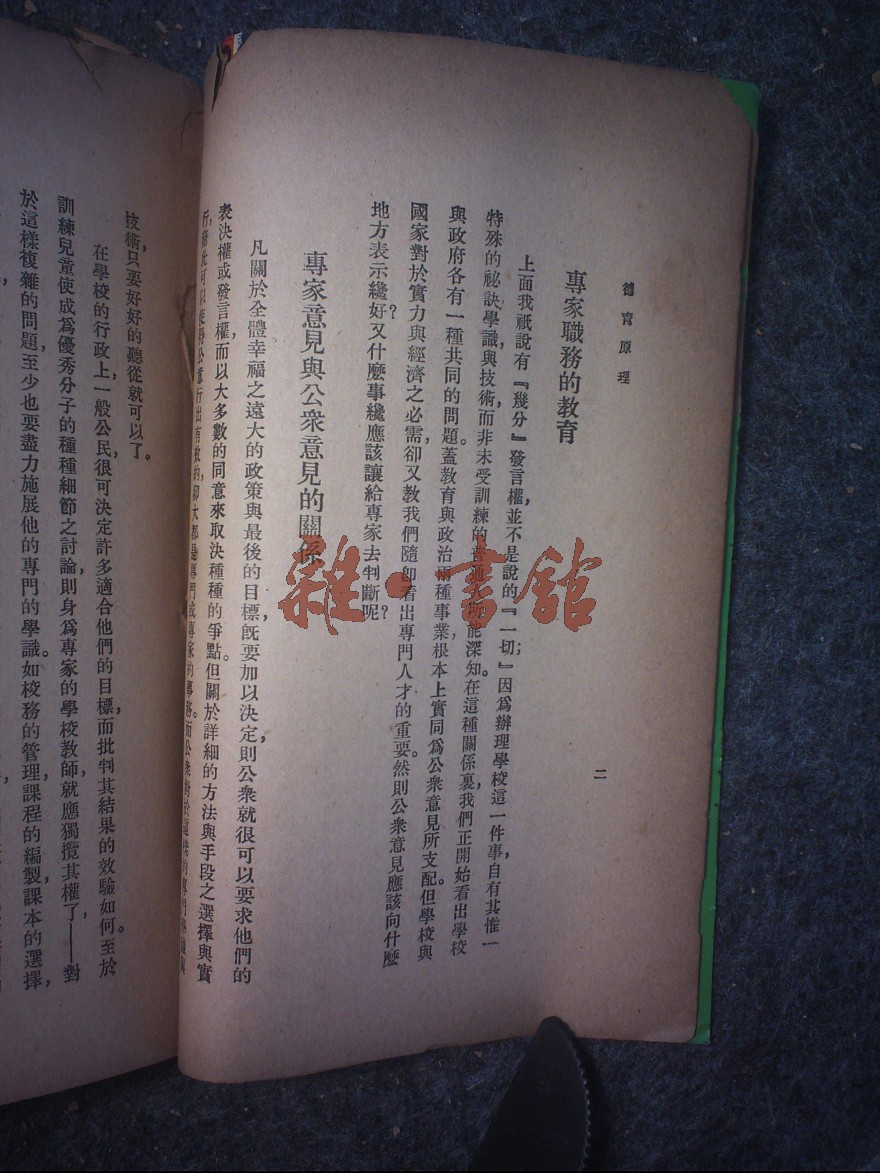 德育原理
二
專家職務的教育
上面我祇說有『幾分』發言權，並不是說的『一切』；因爲辦理學校這一件事，自有其惟一
特殊的祕訣學識與技術，而非未受訓練的普通人所能深知。在這種關係裏，我們正開始看出學校
與政府各有一種共同的問題。蓋教育與政治兩種事業，根本上實同爲公衆意見所支配。但學校與
國家對於實力與經濟之必需，卻又教我們隨卽看出專門人才的重要。然則公衆意見應該向什麼
地方表示纔好？又什麼事纔應該讓給專家去判斷呢？
專家意見與公衆意見的關係
凡關於全體幸福之遠大的政策與最後的目標，旣要加以決定，則公衆就很可以要求他們的
表決權或發言權，而以大多數的同意來取決種種的爭點。但關於詳細的方法與手段之選擇與實
行，
技術，只要好好的聽從就可以了。
在學校的行政上，一般公民，很可決定許多適合他們的目標，而批判其結果的效驗如何。至於
訓練兒童使成爲優秀分子的種種細節之討論，則身爲專家的學校教師，就應獨攬其權了——對
於這樣複雜的問題，至少也要盡力施展他的專門的學識。如校務的管理，課程的編製，課本的選擇，
雜·書館